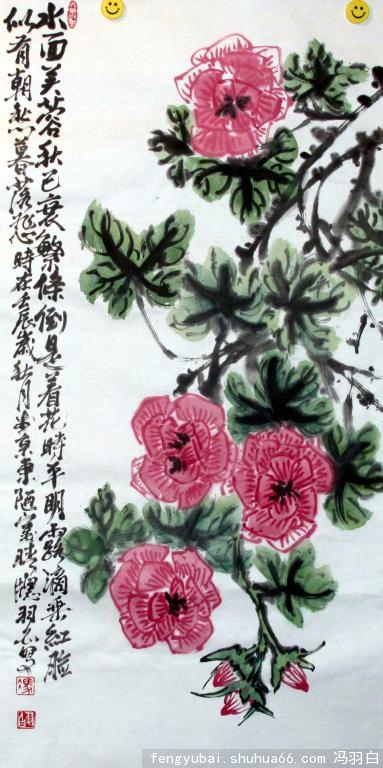 水面芙蓉秋已衰繁條倒是着花時平明露滴垂紅臉
似有朝愁暮落悲時在壬辰歲秋月京東陋晴牕羽白寫
fengyubai.shuhua66.com 冯羽白